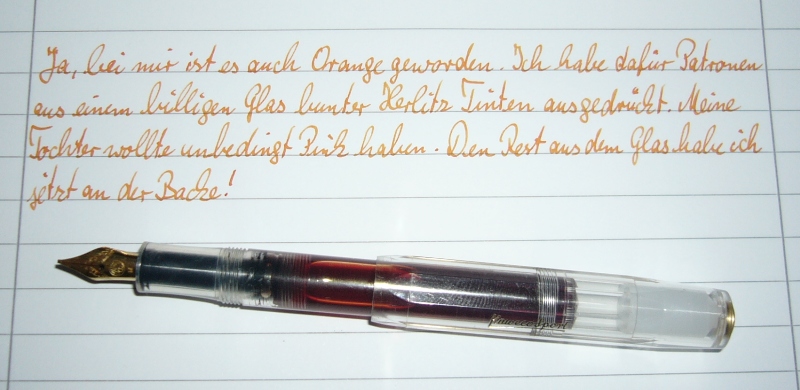 Ja, bei mir ist es auch Orange geworden. Ich habe dafür Patronen
aus einem billigen Glas bunter Herlitz Tinten ausgedrückt. Meine
Tochter wollte unbedingt Pink haben. Den Rest aus dem Glas habe ich
jetzt an der Backe!